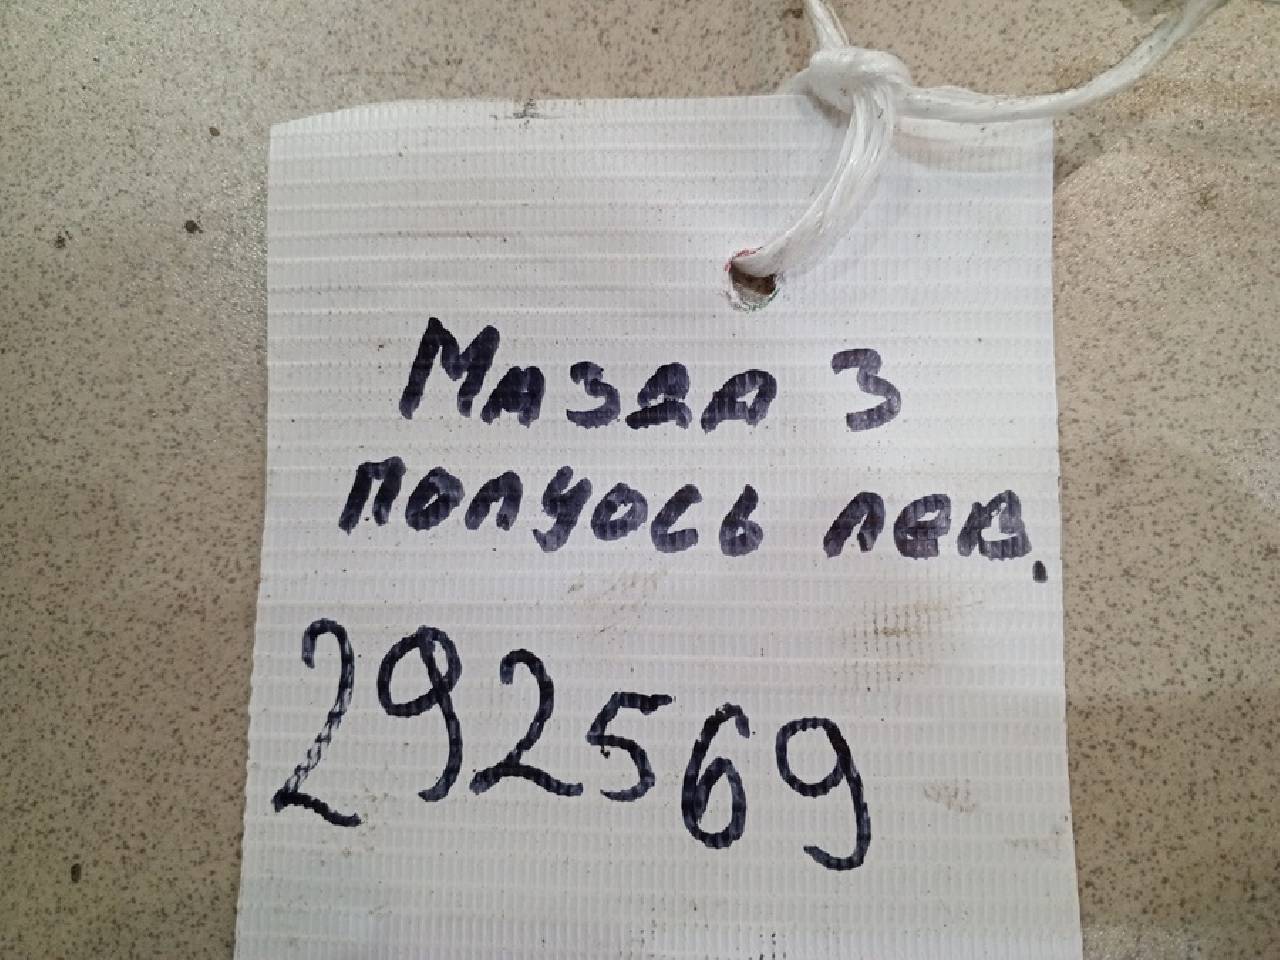 Мазда 3
полуось лев.
292569